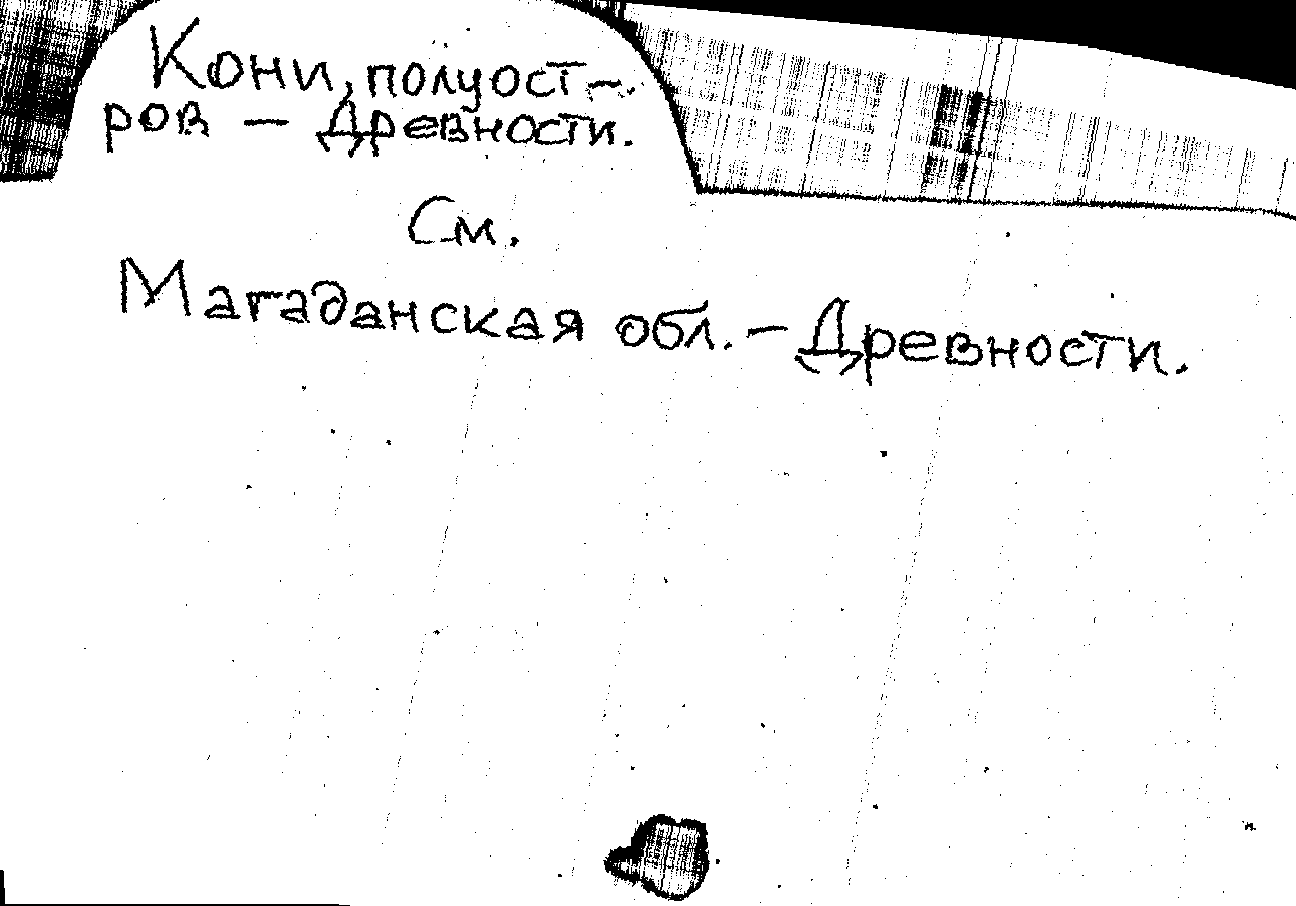 Кони, полуост-
ров — Древности.
См.
Магаданская обл. — Древности.